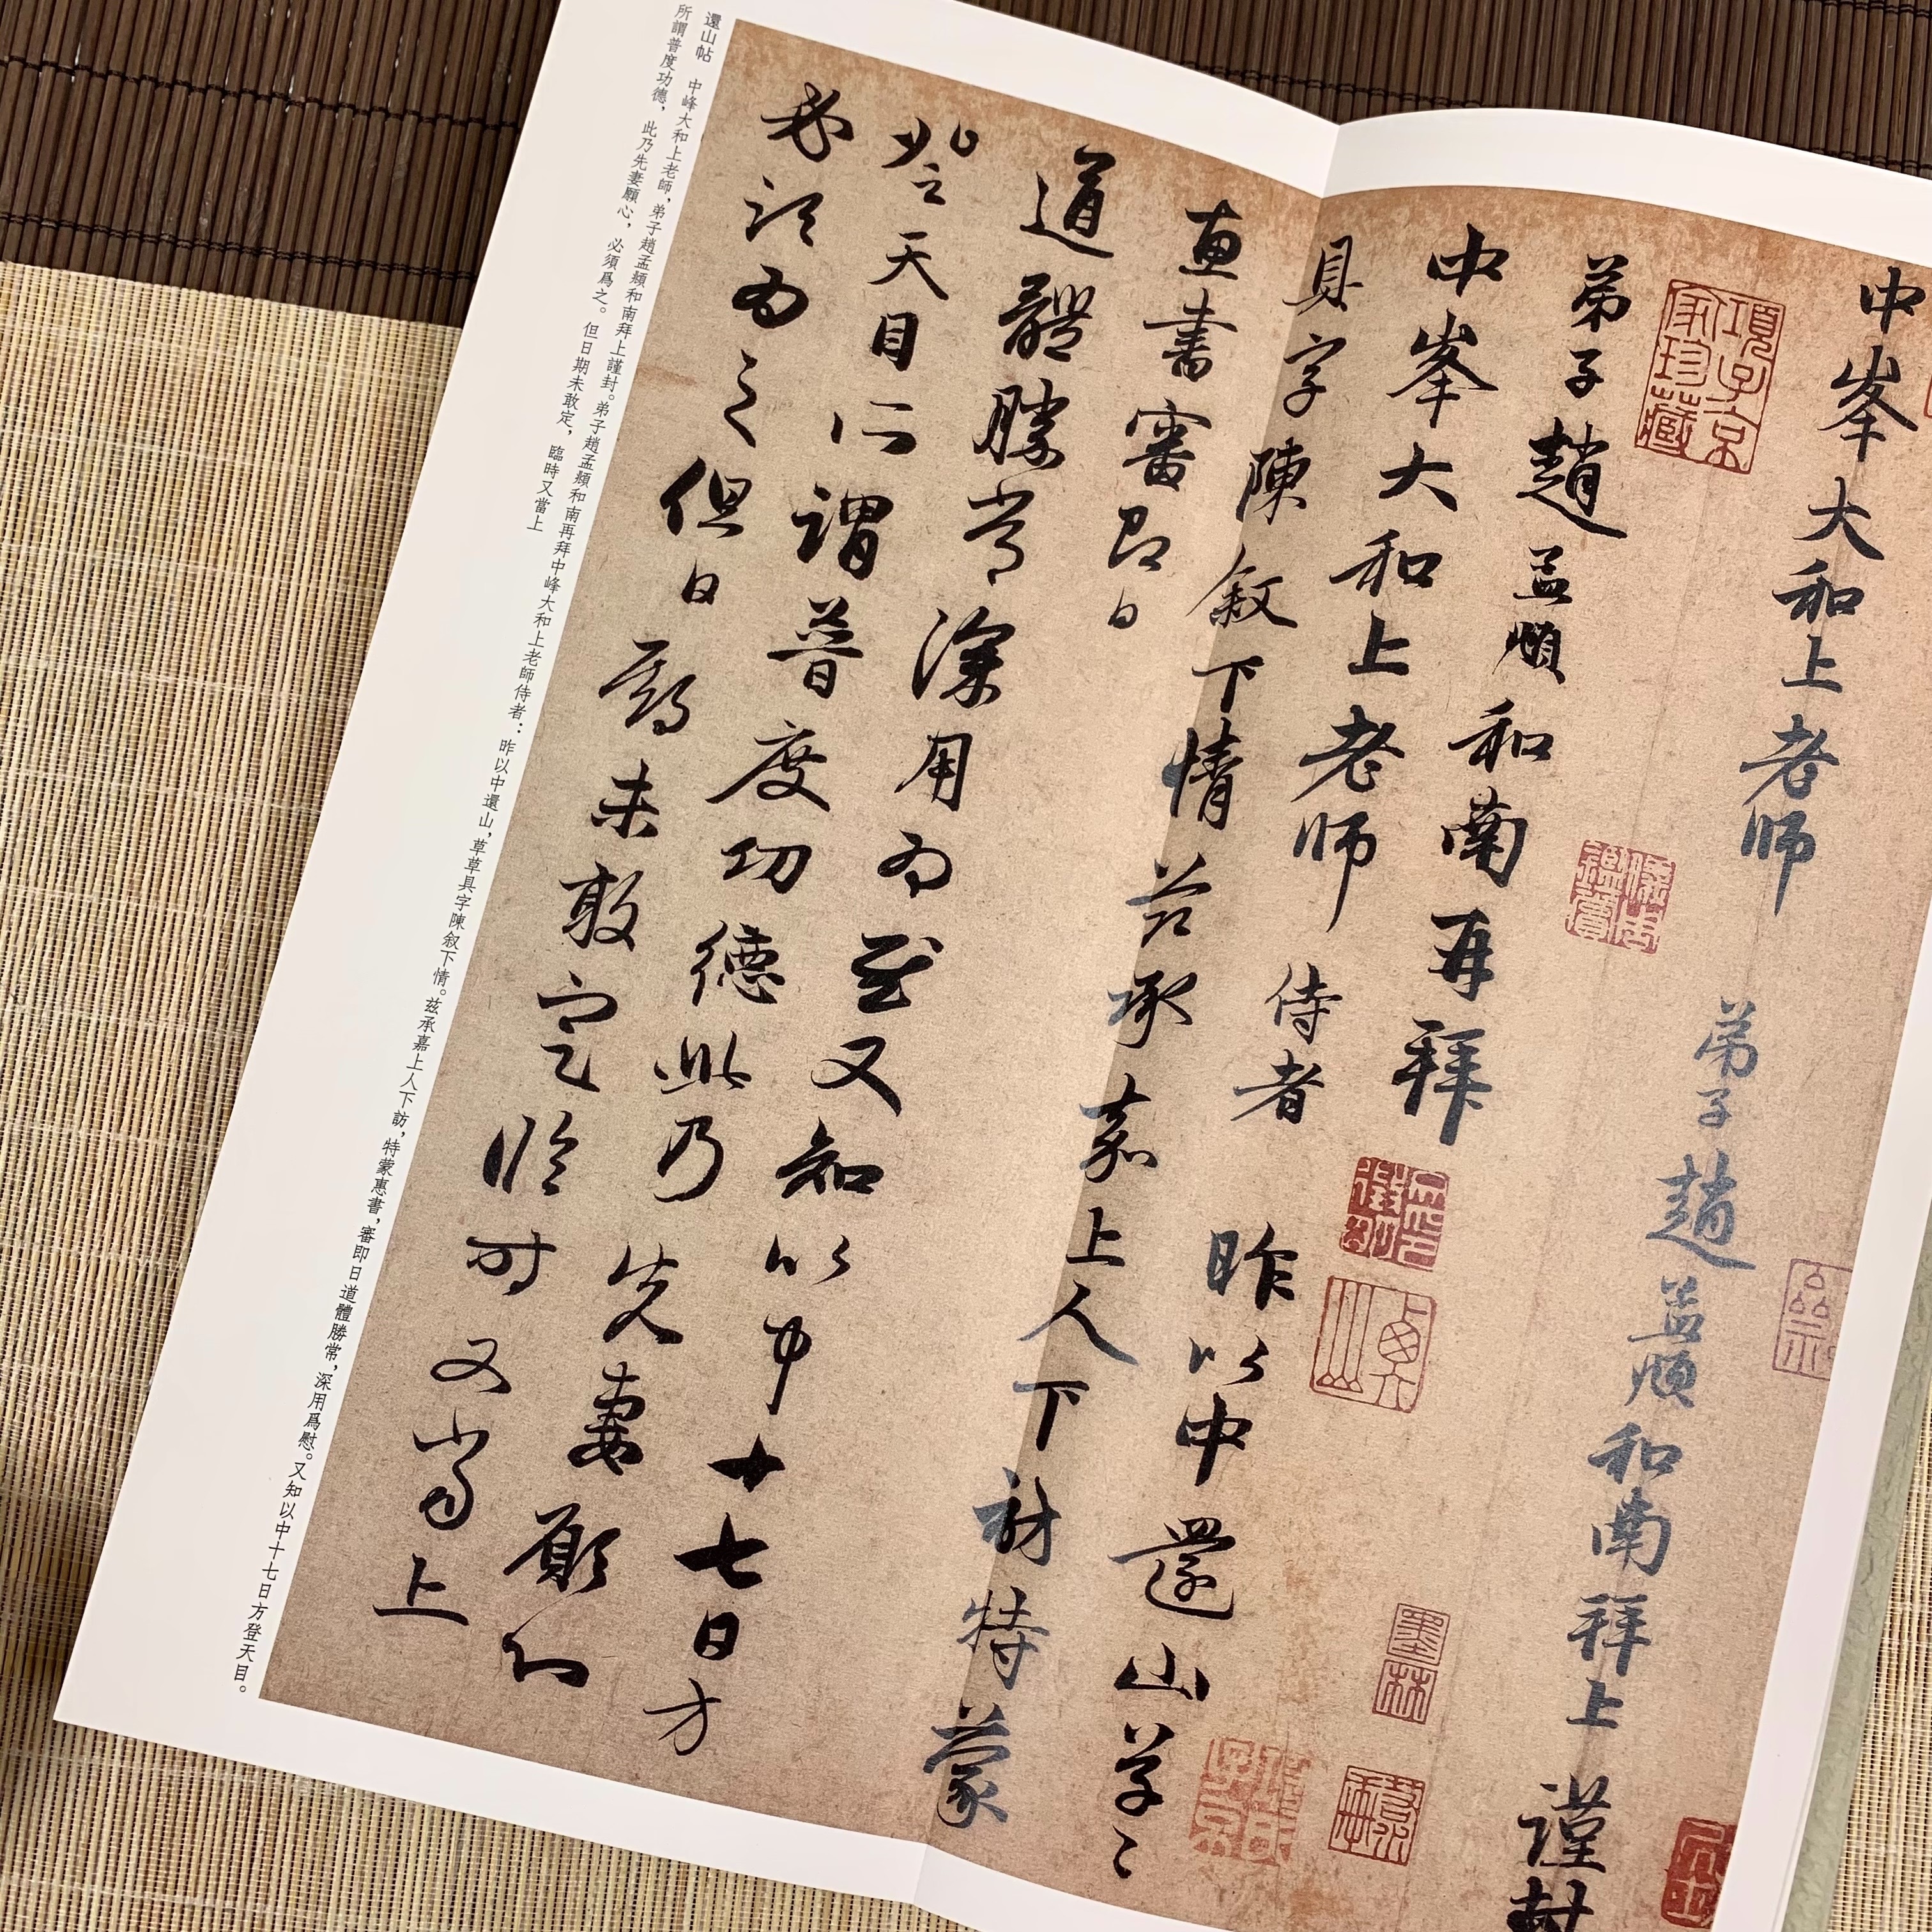 中峯大和上老師 弟子趙孟頫和南拜上 謹封
項子京家珍藏
弟子趙孟頫和南再拜
中峯大和上老師 侍者 昨以中還山草〻
墨林
具字陳叙下情茲承嘉上人下訪特蒙
惠書審即日
道體勝常深用為慰又知以中十七日方
登天目所謂普度功德此乃先妻願心
必須為之但日期未敢定臨時又當上
還山帖 中峰大和上老師,弟子趙孟頫和南拜上謹封。弟子趙孟頫和南再拜中峰大和上老師侍者:昨以中還山,草草具字陳叙下情。兹承嘉上人下訪,特蒙惠書,審即日道體勝常,深用爲慰。又知以中十七日方登天目。
所謂普度功德,此乃先妻願心,必須爲之。但日期未敢定,臨時又當上